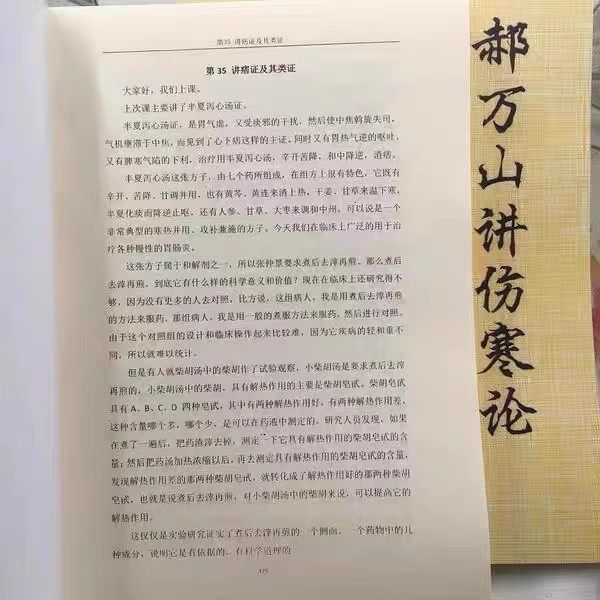 第35 讲痞证及其类证
第 35 讲痞证及其类证
大家好，我们上课。
上次课主要讲了半夏泻心汤证。
半夏泻心汤证，是胃气虚，又受痰邪的干扰，然后使中焦斡旋失司，
气机壅滞于中焦，而见到了心下痞这样的主证。同时又有胃热气逆的呕吐，
又有脾寒气陷的下利，治疗用半夏泻心汤，辛开苦降、和中降逆，消痞。
半夏泻心汤这张方子，由七个药所组成，在组方上很有特色，它既有
辛开、苦降、甘调并用，也有黄芩、黄连来清上热，干姜、甘草来温下寒，
半夏化痰而降逆止呕，还有人参、甘草、大枣来调和中州，可以说是一个
非常典型的寒热并用、攻补兼施的方子。今天我们在临床上广泛的用于治
疗各种慢性的胃肠炎。
这张方子属于和解剂之一，所以张仲景要求煮后去滓再煎。那么煮后
去滓再煎，到底它有什么样的科学意义和价值？现在在临床上还研究得不
够，因为没有更多的人去对照，比方说，这组病人，我是用煮后去滓再煎
的方法来服药，那组病人，我是用一般的煮服方法来服药，然后进行对照。
由于这个对照组的设计和临床操作起来比较难，因为它疾病的轻和重不
同，所以就难以统计。
但是有人就柴胡汤中的柴胡作了试验观察，小柴胡汤是要求煮后去滓
再煎的，小柴胡汤中的柴胡，具有解热作用的主要是柴胡皂甙，柴胡皂甙
具有 A、B、C、D 四种皂甙，其中有两种解热作用好，有两种解热作用差。
这种含量哪个多，哪个少，是可以在药液中测定的，研究人员发现，如果
在煮了一遍后，把药渣滓去掉，测定一下它具有解热作用的柴胡皂甙的含
量；然后把药汤加热浓缩以后，再去测定具有解热作用的柴胡皂甙的含量，
发现解热作用差的那两种柴胡皂甙，就转化成了解热作用好的那两种柴胡
皂甙，也就是说煮后去滓再煎，对小柴胡汤中的柴胡来说，可以提高它的
解热作用。
这仅仅是实验研究证实了煮后去滓再煎的一个侧面，一个药物中的几
种成分，说明它是有依据的，有科学道理的
郝万山讲伤寒论